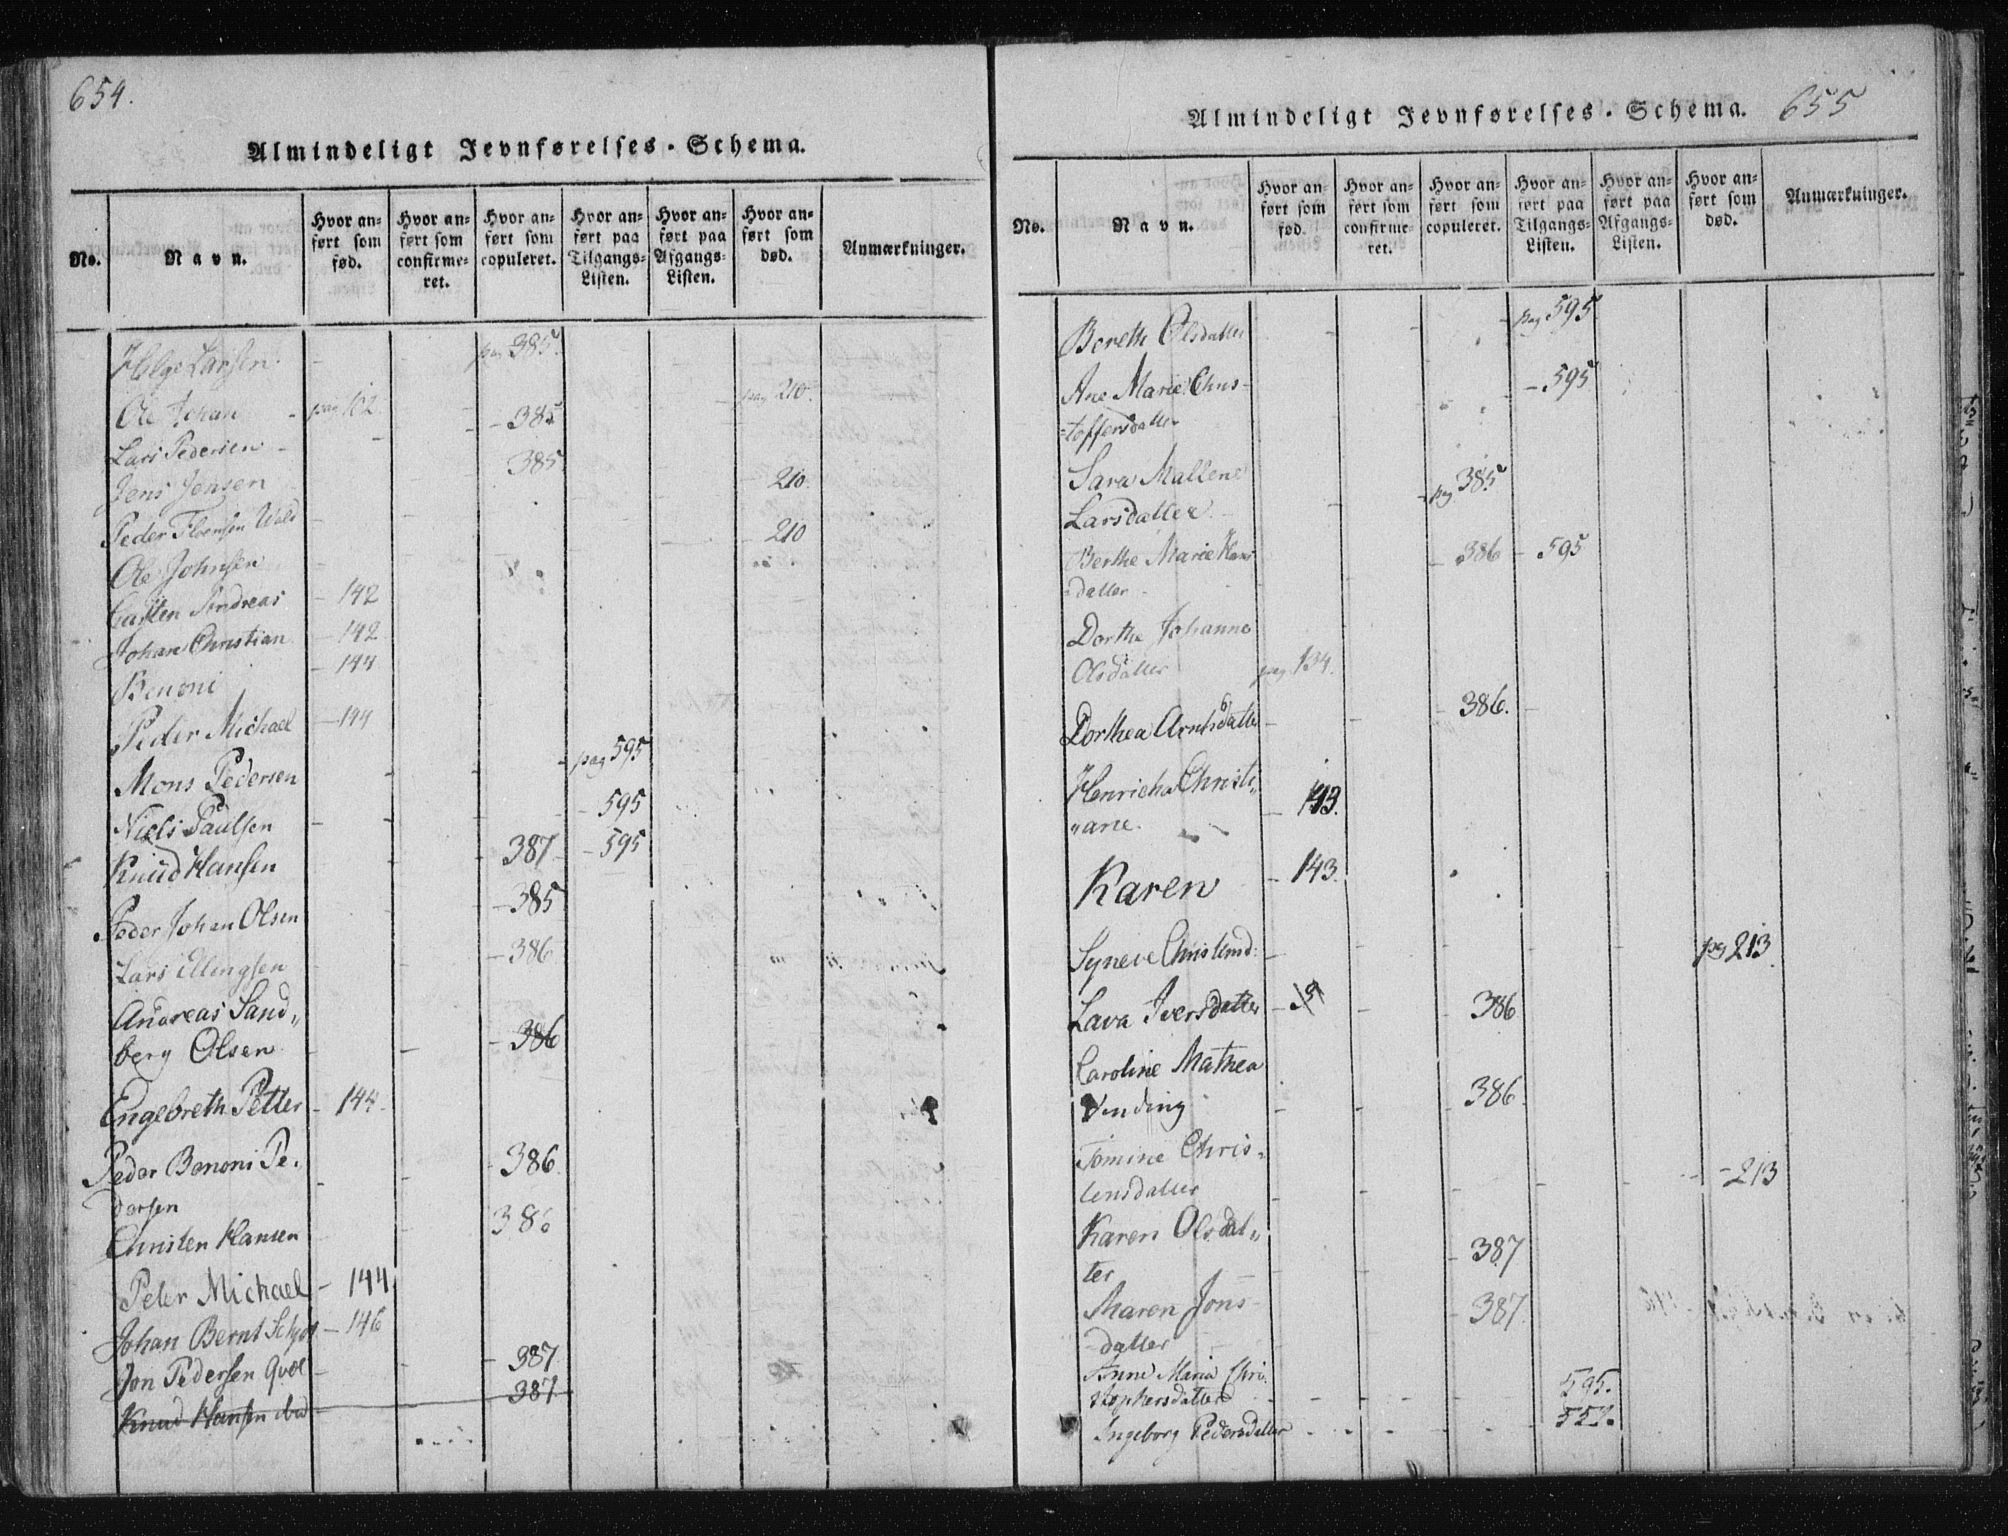 654.
Almindeligt Jevnførelses-Schema.
No.
Navn.
Hvor an-
ført som
fød.
Hvor an-
ført som
confirme-
ret.
Hvor an-
ført som
copuleret.
Hvor an-
ført paa
Tilgangs-
Listen.
Hvor an-
ført paa
Afgangs-
Listen.
Hvor an-
ført som
død.
Anmærkninger.
Helge Larsen - pag 385.
Ole Johan - pag 142 - pag 210.
Lars Pedersen - - 385
Jens Jensen 385
Peder Wold - 210.
Ole Johnsen - 210
Carsten Andreas - 142
Johan Christian - 142
Benoni - 144
Peder Michael - 144
Mons Pedersen - - - pag 595
Niels Paulsen - - - 595
Knud Hansen 387 - 595
Peder Johan Olsen - 385
Lars Ellingsen - 386
Andreas Sand„
berg Olsen - - - 386
Engebreth Petter - 144.
Peder Benoni Pe-
dersen - - - 386.
Christen Hansen 386
Peter Michael - 144
Johan Bernt - 146
Jon Pedersen - - - 387
Knud Hansen 387
655
Almindeligt Jevnførelses-Schema.
No.
Navn.
Hvor an-
ført som
fød.
Hvor an-
ført som
confirme-
ret.
Hvor an-
ført som
copuleret.
Hvor an-
ført paa
Tilgangs-
Listen.
Hvor an-
ført paa
Afgangs-
Listen.
Hvor an-
ført som
død.
Anmærkninger.
Bereth Olsdatter - - - pag 595.
Ane Marie Chris-
=toffersdatter - 595
Sara Mallene
Larsdatter - - - pag 385
Berthe Marie Hans
=datter - 386 - 595
Dorthe Johanna
Olsdatter pag 134.
Dorthea Arntsdatter - - - 386. -
Henricha Christi„
„ane. - 143.
Karen - 143.
Syneve - - - - - pag 213.
Lava Iversdatter - - - 386
Caroline Mathea
Vending - - - 386.
Tomine Chris„
tensdatter - - - - - - 213
Karen Olsdat„
ter - 387
Maren Jons-
datter - 387.
Anne Maria Chri
stophersdatter - - - - 595.
Ingeborg Pedersdatter - - - - 557.